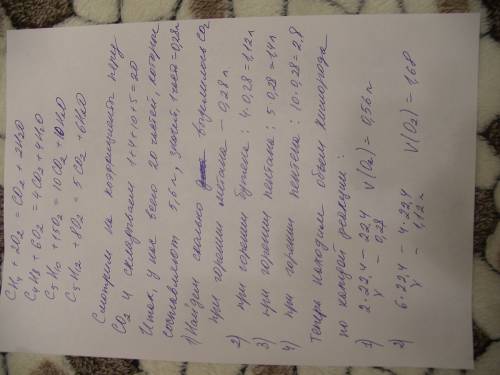 CH4 + 2O2 = CO2 + 2H2O
C4H8 + 6O2 = 4CO2 + 4H2O
C5H10 + 15O2 = 10CO2 + 10H2O
C5H12 + 8O2 = 5CO2 + 6H2O
Смотрим на коэффициенты перед
CO2 и складываем 1+4+10+5=20
Итак, у нас всего 20 частей, которые
составляют 5,6 л, значит, 1 часть=0,28л
1) Найдем сколько выделилось CO2
при горении метана - 0,28 л
2) при горении бутена: 4·0,28=1,12л
3) при горении пентана: 5·0,28=1,4л
4) при горении пентена: 10·0,28=2,8
Теперь находим объем кислорода
по каждой реакции:
1) 2·22,4 - 22,4 V(O2)=0,56л
х - 0,28
2) 6·22,4 - 4·22,4 V(O2)=1,68
х - 1,12л